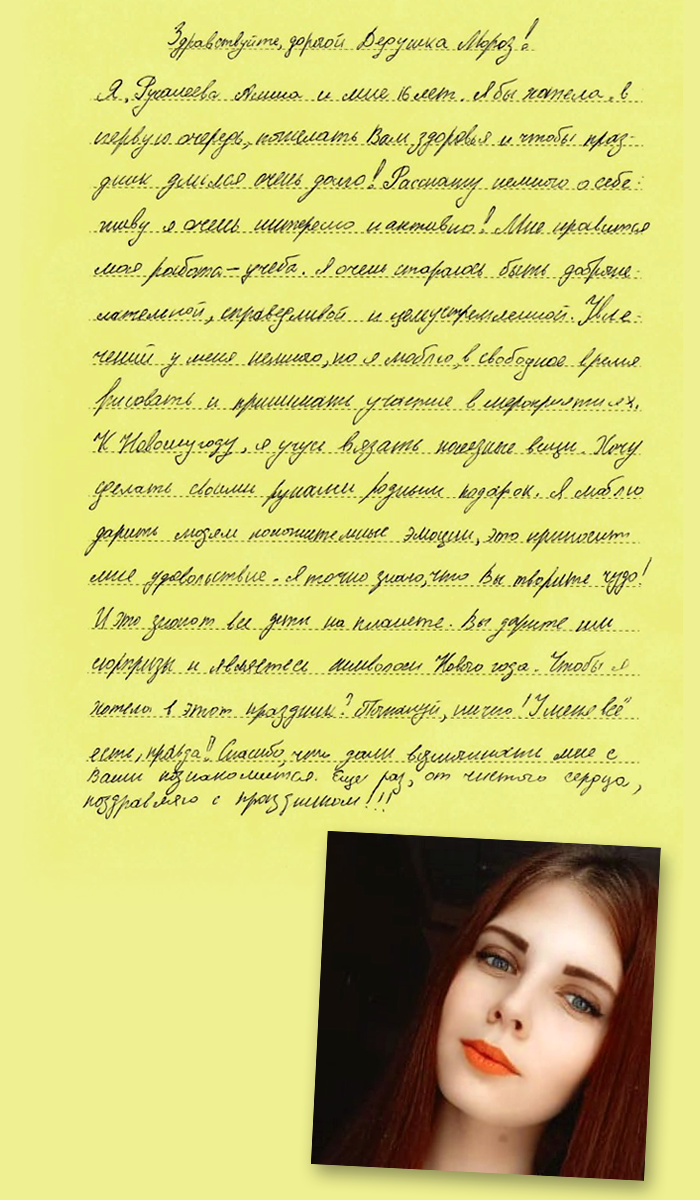 Здравствуйте, дорогой Дедушка Мороз!
Я, Алина и мне 16 лет. Я бы хотела, в
первую очередь, пожелать Вам здоровья и чтобы праз-
дник длился очень долго! Расскажу немного о себе:
живу я очень интересно и активно! Мне нравится
моя работа – учеба. Я очень стараюсь быть доброже-
лательной, справедливой и целеустремленной. Увле-
чений у меня немного, но я люблю в свободное время
рисовать и принимать участие в мероприятиях.
К Новому году, я учусь вязать полезные вещи. Хочу
сделать своими руками родным подарок. Я люблю
дарить людям положительные эмоции, это приносит
мне удовольствие. Я точно знаю, что Вы творите чудо!
И это знают все дети на планете. Вы дарите им
сюрпризы и являетесь символом Нового года. Что бы я
хотела в этот праздник? Пожалуй, ничего! У меня всё
есть, правда! Спасибо, что дали возможность мне с
Вами познакомится. Еще раз, от чистого сердца,
поздравляю с праздником!!!